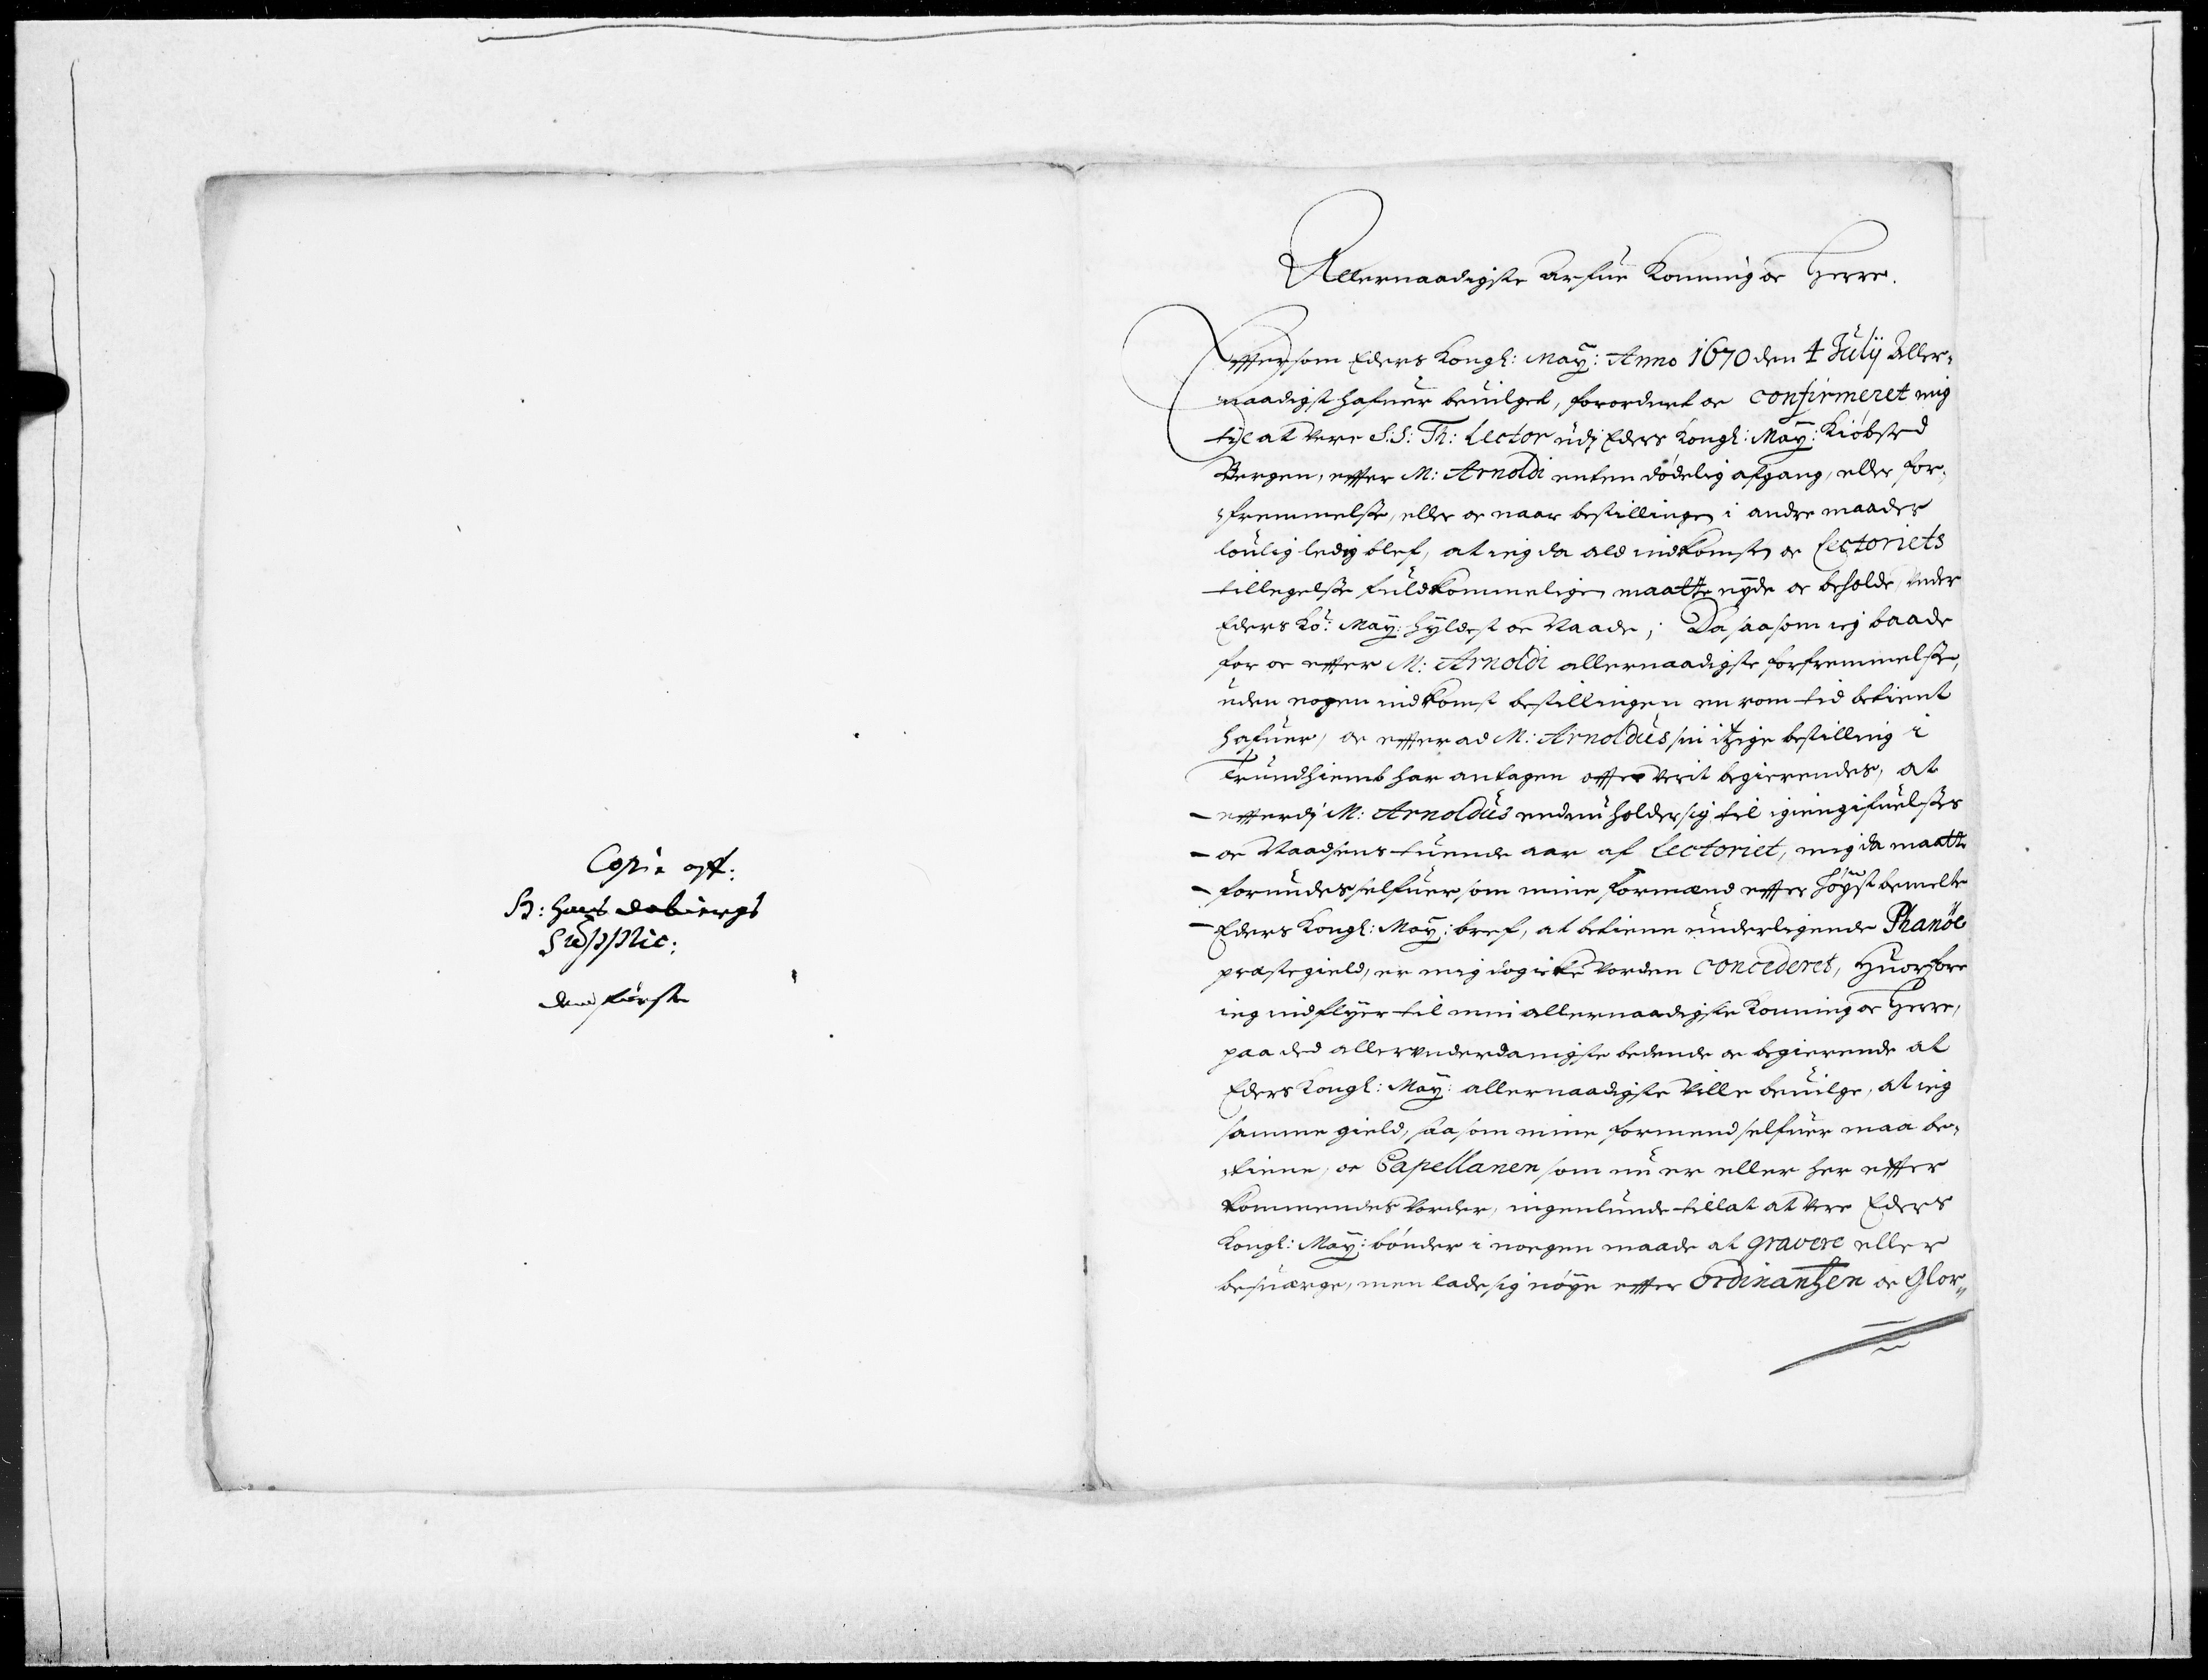 Copie aff:
H: Hans dabiergs
Supplic:
den første
Allernaadigste Arfue Konning oc Herre.
Effter som Eders Kongl: May: Anno 1670 den 4 Julij Aller-
naadigst hafuer beuilget, forordnet oc confirmeret mig
til at vere S:S: Th: Lector udj Eders Kongl: May: Kiøbsted
Bergen, effter M: Arnoldi enten dødelig afgang, eller for-
fremmelse, eller oc naar bestillingen i andre maader
loulig ledig blef, at ieg da ald indkomsten oc Lectoriets
tillegelse fuldkommeligen maatte nyde oc beholde, under
Eders Ko: May: hyldest oc Naade; Da saasom ieg baade
for oc effter M: Arnoldi allernaadigste forfremmelse,
uden nogen indkomst bestillingen en rom tid betient
hafuer, oc effter ad M: Arnoldus sin itzige bestilling i
Trundhiemb har antagen offte verit begierendes, at
efferdj M: Arnoldus endnu holder sig til igiengifuelses
oc Naadsens tuende aar af Lectoriet, mig da maatte
forundes selfuer, som mine formænd effter høyst bemelte
Eders Kongl: May: bref, at betiene underligende Phanøe
præstegield, er mig dog icke vorden concederet, Huorfore
ieg indflyer til min allernaadigste Konning oc Herre,
paa ded allerunderdanigste bedende oc begierende at
Eders Kongl: May: allernaadigste ville beuilge, at ieg
samme gield, saasom mine formend selfuer maa be-
tiene, oc Capellanen som nu er eller her effter
kommendes vorder, ingenlunde tillat at vere Eders
Kongl: May: bønder i noegen maade at gravere eller
besuærge, men lade sig nøye effter Ordinantzen oc Glor-